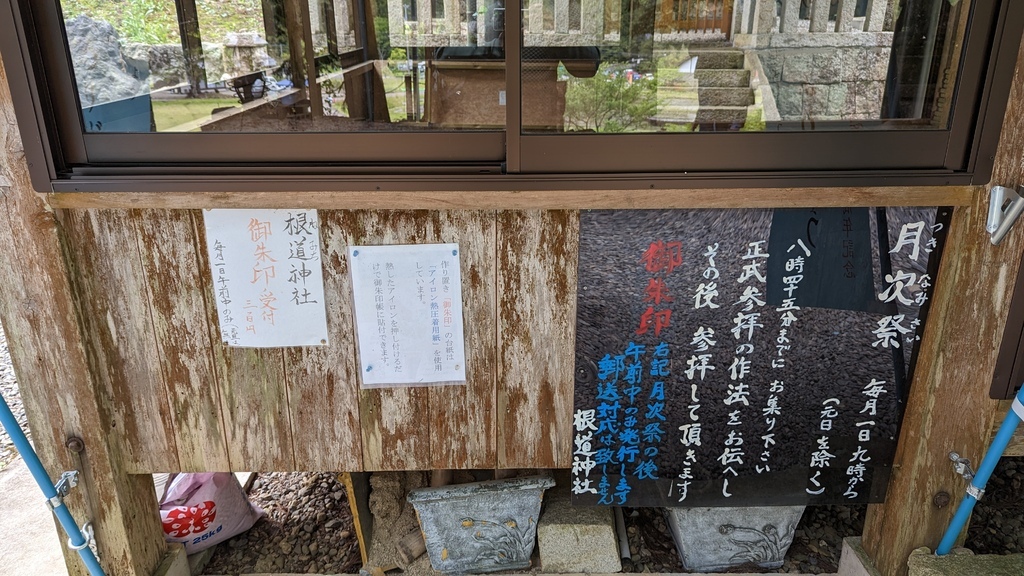 月次祭
つきなみさい
毎月一日九時から
(元日を除く)
八時四十五分までに お集り下さい
正式参拝の作法をお伝へし
その後 参拝して頂きます
御朱印
右記月次祭の後
午前中のみ 行します
郵送対応は致しません
根道神社
作り置き「御朱印」の台紙は
「アイロン熱圧着用紙」を使用
しています。
熱したアイロンを押し付けるだ
けで御朱印帳に貼付できます。
根道神社
御朱印受付
三百円
毎月一日午前中のみ
25kg